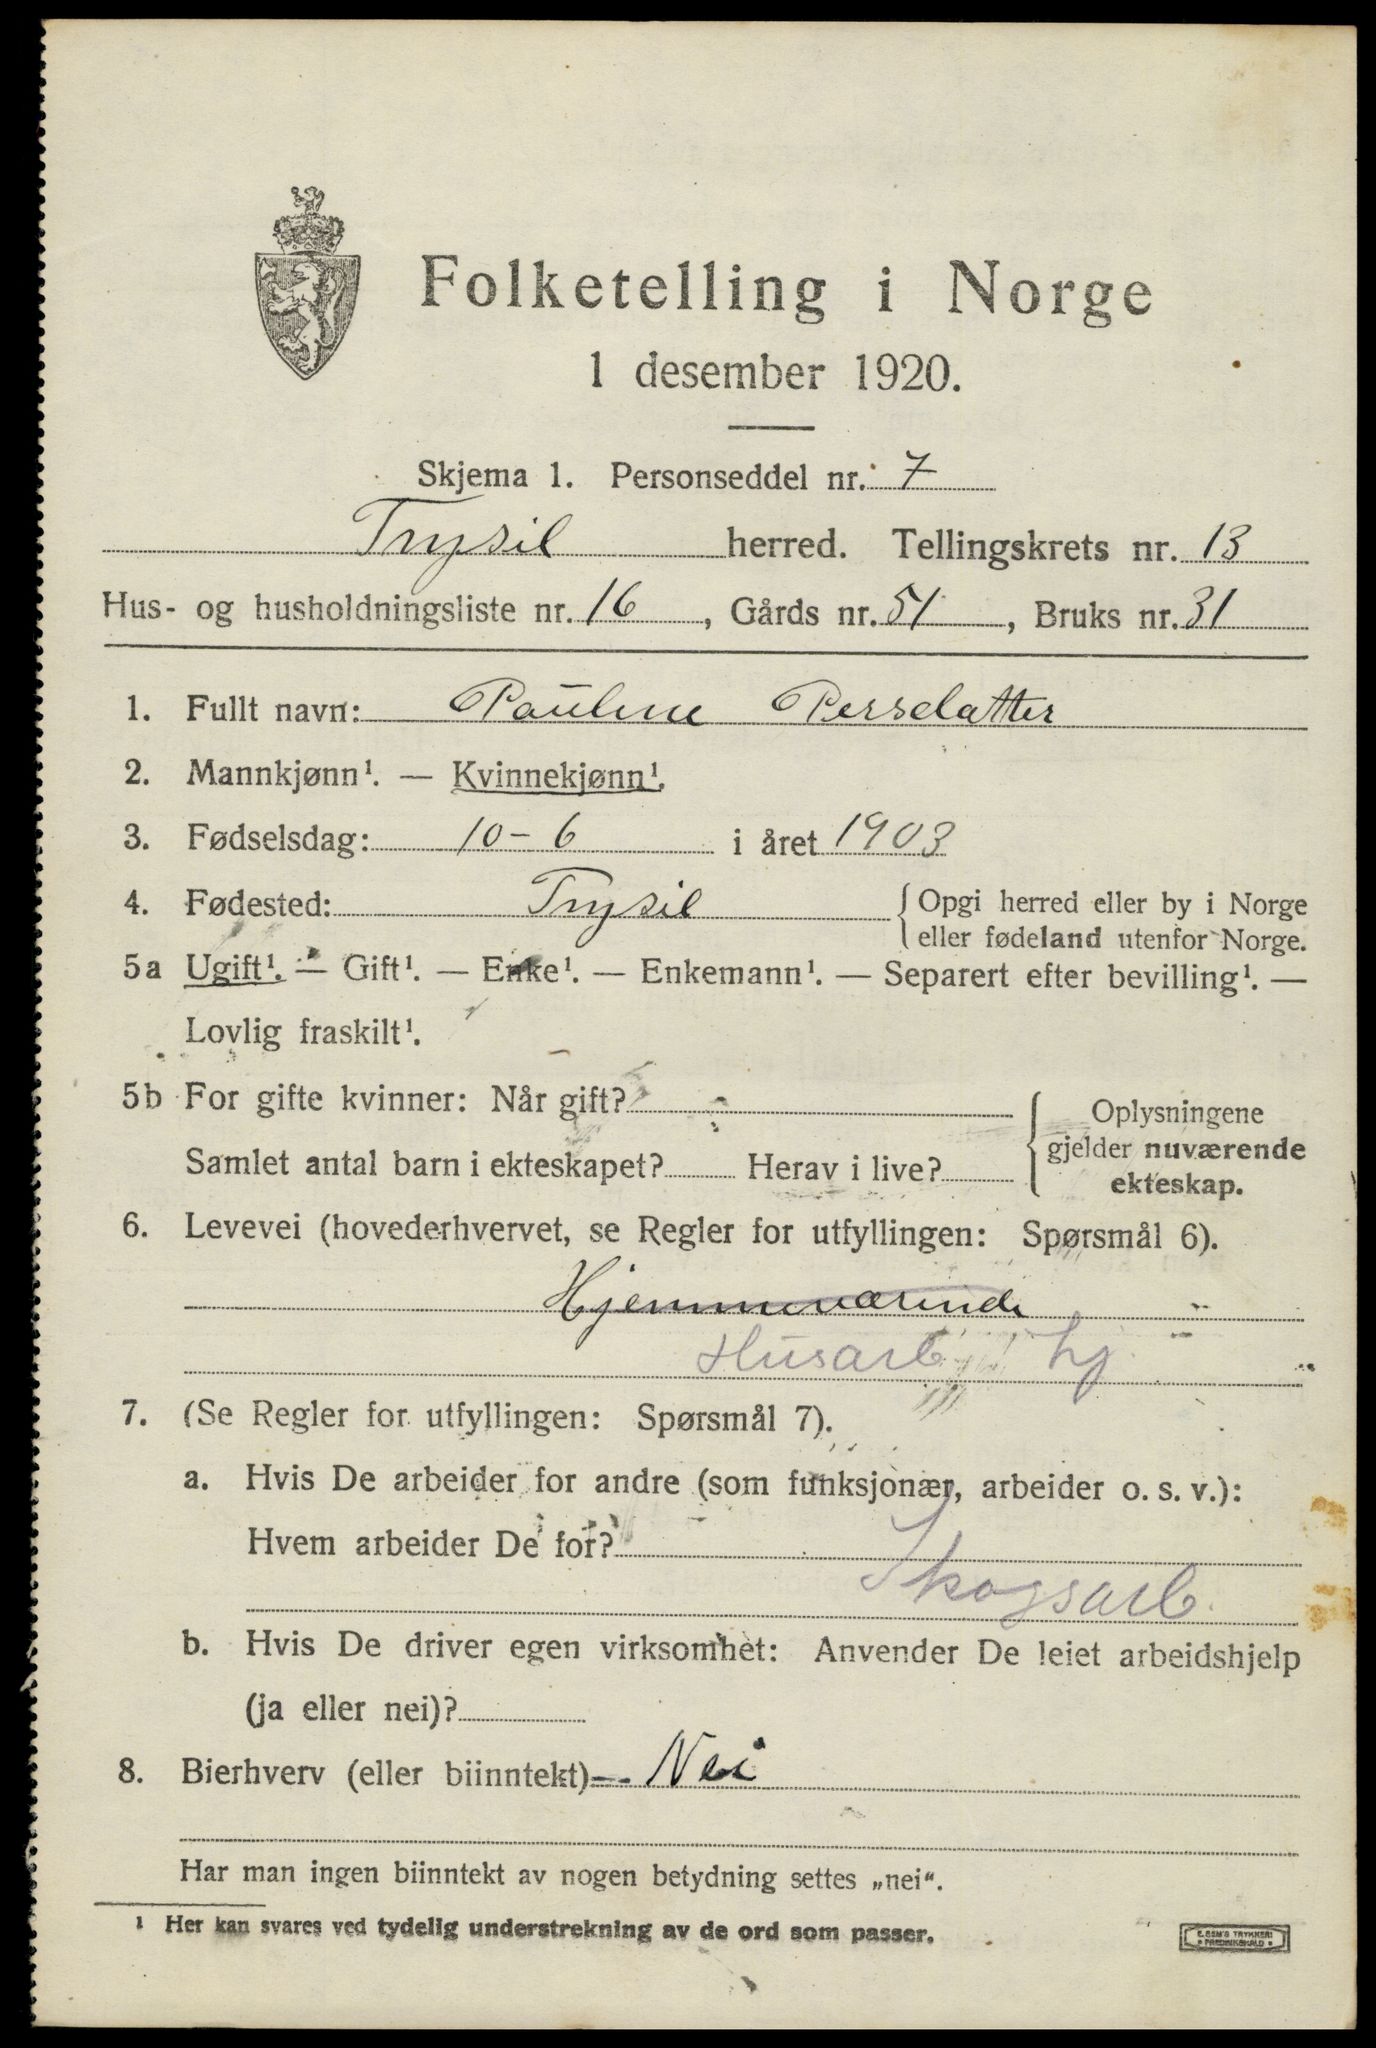 Folketelling i Norge
1 desember 1920.
Skjema 1. Personseddel nr. 7
Trysil herred. Tellingskrets nr. 13
Hus- og husholdningsliste nr. 16, Gårds nr. 51, Bruks nr. 31
1. Fullt navn: Pauline Persslatter
2. Mannkjønn¹. — Kvinnekjønn¹.
3. Fødselsdag: 10-6 i året 1903
4. Fødested: Trysil { Opgi herred eller by i Norge
eller fødeland utenfor Norge.
5a Ugift¹. — Gift¹. — Enke¹. — Enkemann¹. — Separert efter bevilling¹. —
Lovlig fraskilt¹.
5b For gifte kvinner: Når gift?
Samlet antal barn i ekteskapet? Herav i live?
{ Oplysningene
gjelder nuværende
ekteskap.
6. Levevei (hovederhvervet, se Regler for utfyllingen: Spørsmål 6).
Hjemmeværende
Husarb hj.
7. (Se Regler for utfyllingen: Spørsmål 7).
a. Hvis De arbeider for andre (som funksjonær, arbeider o. s. v.):
Hvem arbeider De for?
Skogsarb.
b. Hvis De driver egen virksomhet: Anvender De leiet arbeidshjelp
(ja eller nei)?
8. Bierhverv (eller biinntekt) Nei
Har man ingen biinntekt av nogen betydning settes „nei“.
¹ Her kan svares ved tydelig understrekning av de ord som passer.
E. SEM'S TRYKKERI
• FREDRIKSHALD •